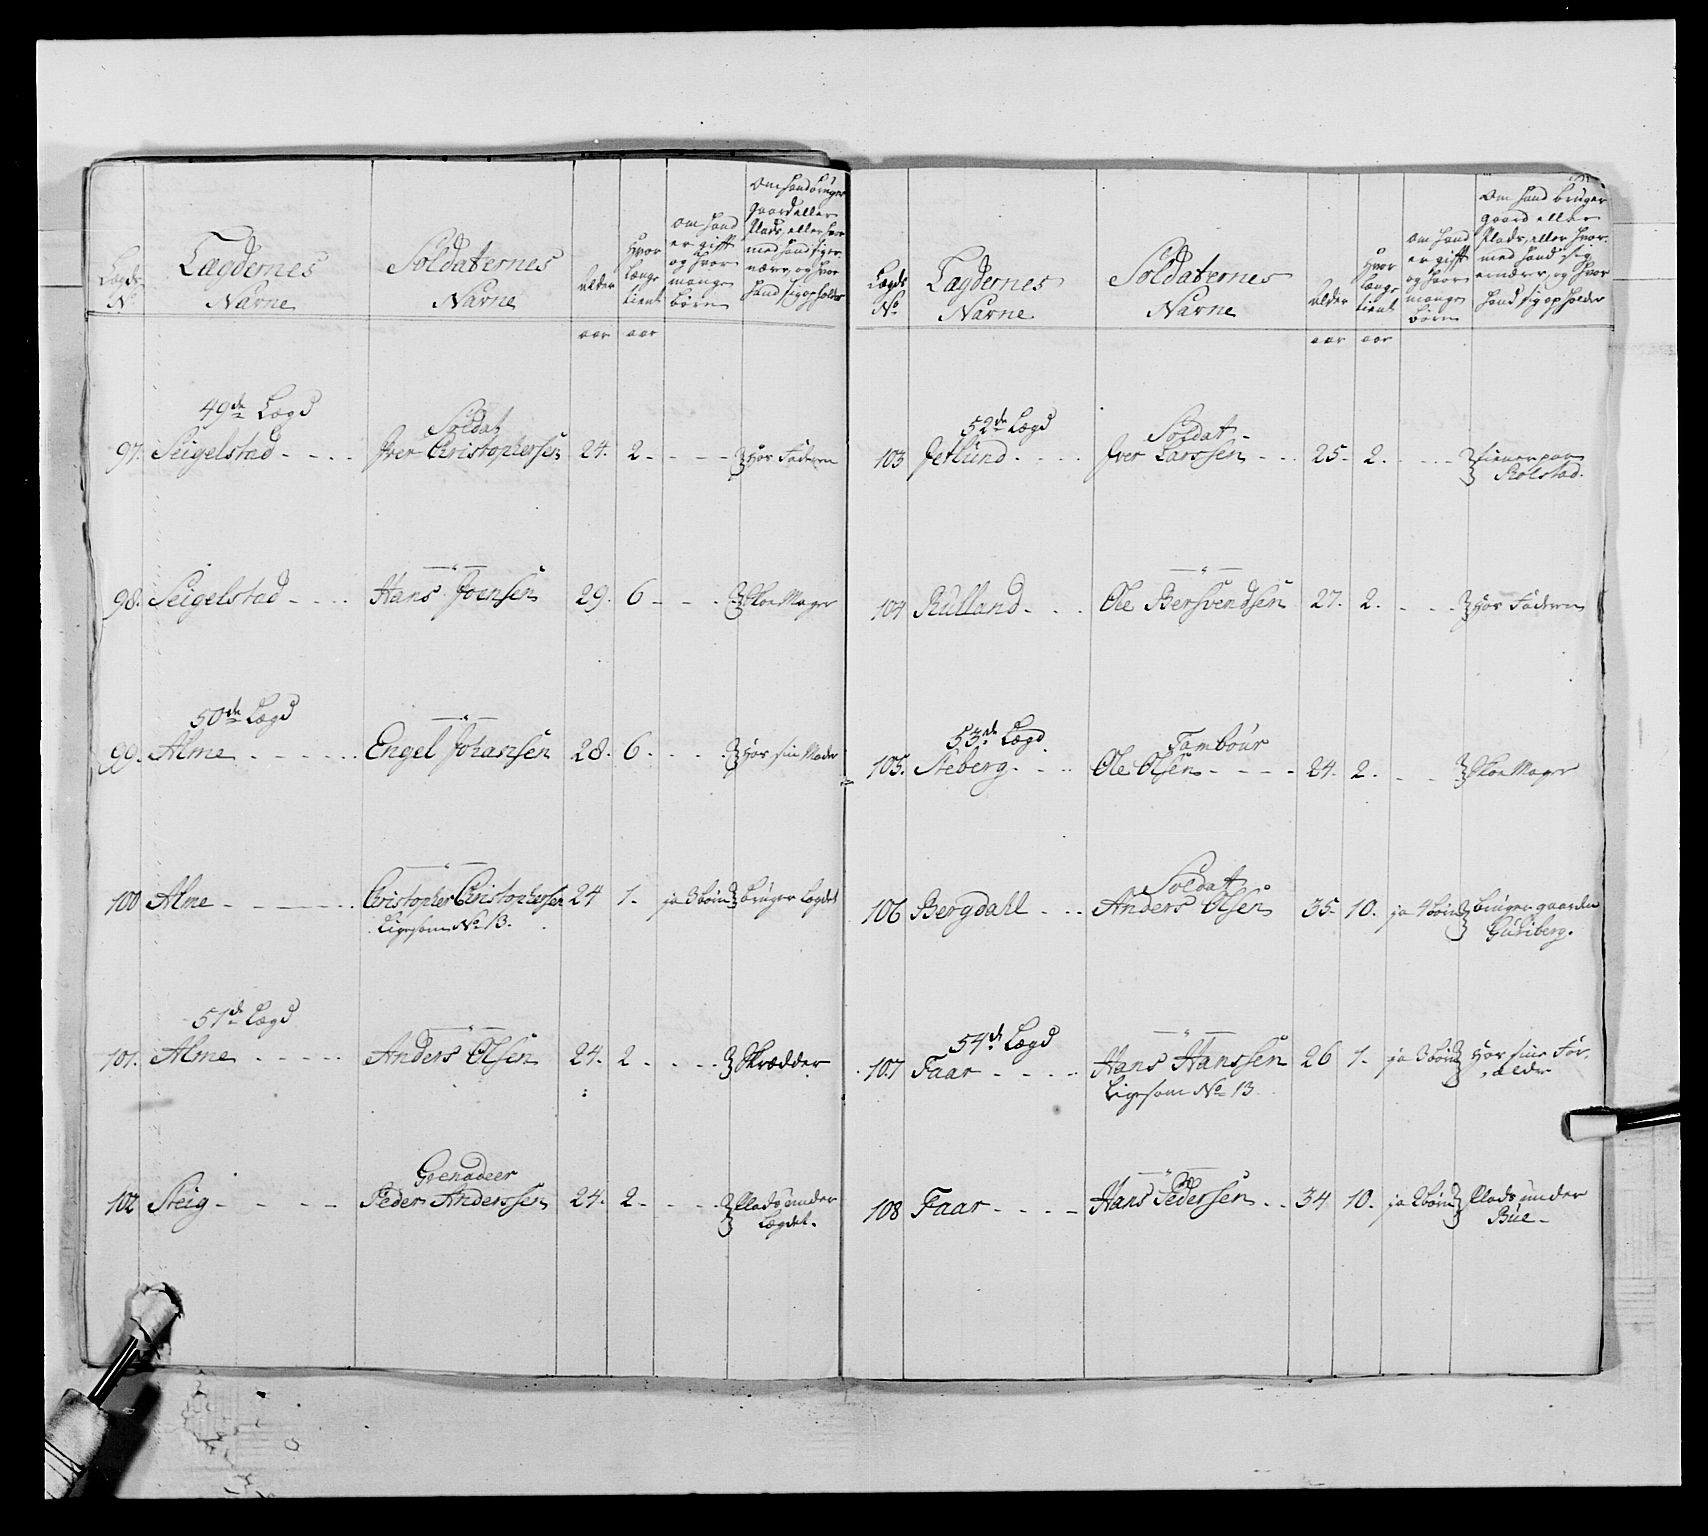 Lægds
No
Lægdernes
Navne
Soldaternes
Navne
alder
Hvor
længe
tient
om hand
er gift
og hvor
mange
börn
Om hand bruger
gaard eller
Plads, eller hvor
med hand sig er-
nærer, og hvor
hand sig opholder
aar aar
49de Lægd
Soldat
97. Seigelstad - - - - Iver Christophersen 24. 2. - - - - Hos Faderen
—"—
98. Seigelstad - - - - Hans Joensen 29. 6 - - - Skoe Mager
50de Lægd
—"—
99. Alme - - - - - - Engel Johansen 28. 6. - - - - Hos sin Moder
—"—
100 Alme - - - - - - Christopher Christophersen 24 1. ja 3 börn bruger Lægdet
Ligesom No 13.
51de Lægd
—"—
101. Alme - - - - - Anders Olsen 24. 2 - - - - Skrædder
Grenadeer
102 Steig - - - - - Peder Anderssen 24. 2. - - - - Plads under
Lægdet.
Lægds
No
Lægdernes
Navne
Soldaternes
Navne
alder
Hvor
længe
tient
Om hand
er gift
og hvor
mange
börn
Om hand bruger
gaard eller
Plads, eller hvor-
med hand sig
ernærer, og hvor
hand sig opholder
aar aar
52de Lægd
Soldat -
103 Jetlund - - - - Iver Larssen - - - 25. 2. - - - - tiener paa
Rolstad.
—"—
104 Rulland - - - Ole Bersvendsen 27. 2. - - - - Hos Faderen
53de Lægd.
Tambour
105. Steberg - - - - Ole Olsen - - - - 24. 2. - - - Skoe Mager
Soldat
106 Bergdahl - - - Anders Olsen 35. 10. ja 4 börn bruger gaarden
Guriberg.
54de Lægd
—"—
107 Faar - - - - - Hans Hanssen 26 1. ja 3 börn Hos sine For-
ælde
Ligesom No 13
—"—
108 Faar - - - - - Hans Pedersen - - 34 10. ja 2 börn Plads under
Bue -